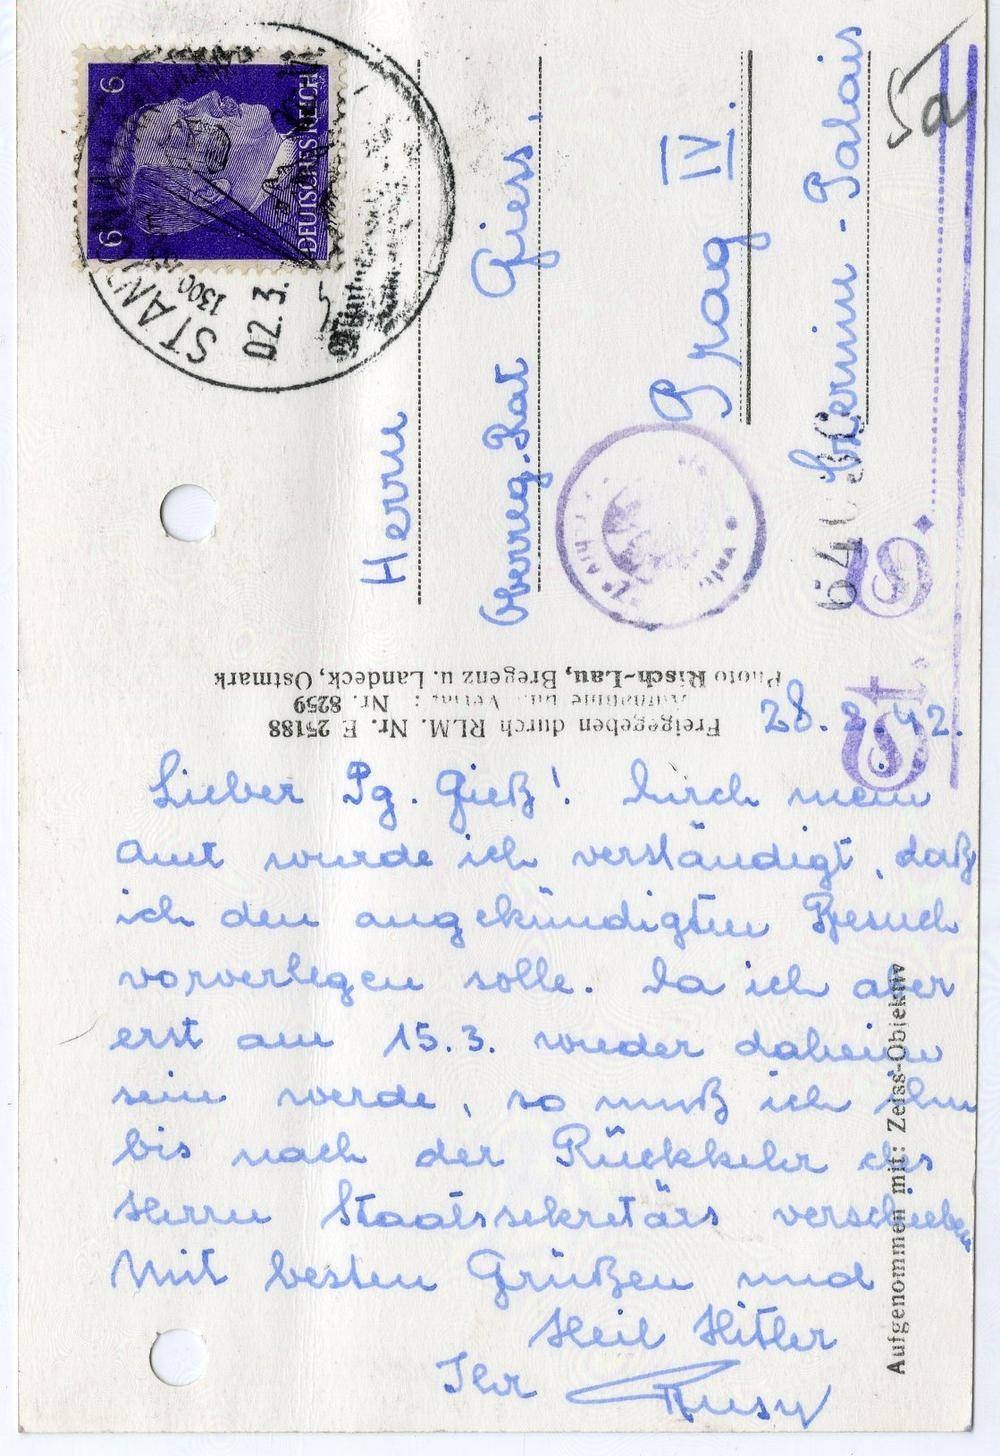 28. 2. 42.
Lieber Pg. Gieß! Durch mein
Amt wurde ich verständigt, daß
ich den angekündigten Besuch
vorverlegen solle. Da ich aber
erst am 15. 3. wieder daheim
sein werde, so muß ich ihn
bis nach der Rückkehr des
Herrn Staatssekretärs verschieben
Mit besten Grüßen und
Heil Hitler
Ihr
Herrn
Oberreg. Rat Giess,
Prag IV.
Czernin-Palais
5a
St. S.
DEUTSCHES REICH
6 6
ST. ANTON
1300
02.3.
Freigegeben durch RLM. Nr. E 25188
Nr. 8259
Photo Risch-Lau, Bregenz u. Landeck, Ostmark
Aufgenommen mit: Zeiss-Objektiv